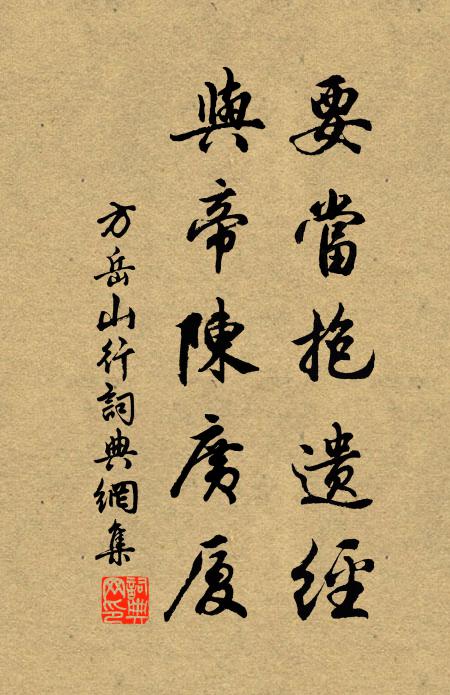 要當抱遺經
與帝陳廣厦
方岳山行詞典網集
詞典網印